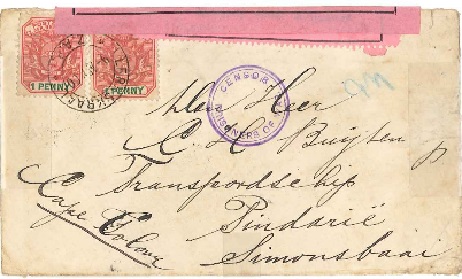 1 PENNY
PENNY
CENSOR
PRISONERS OF
Den Heer
C. H. Buijten
Transpordschip
Pindarië
Simonsbaai
Cape Colony